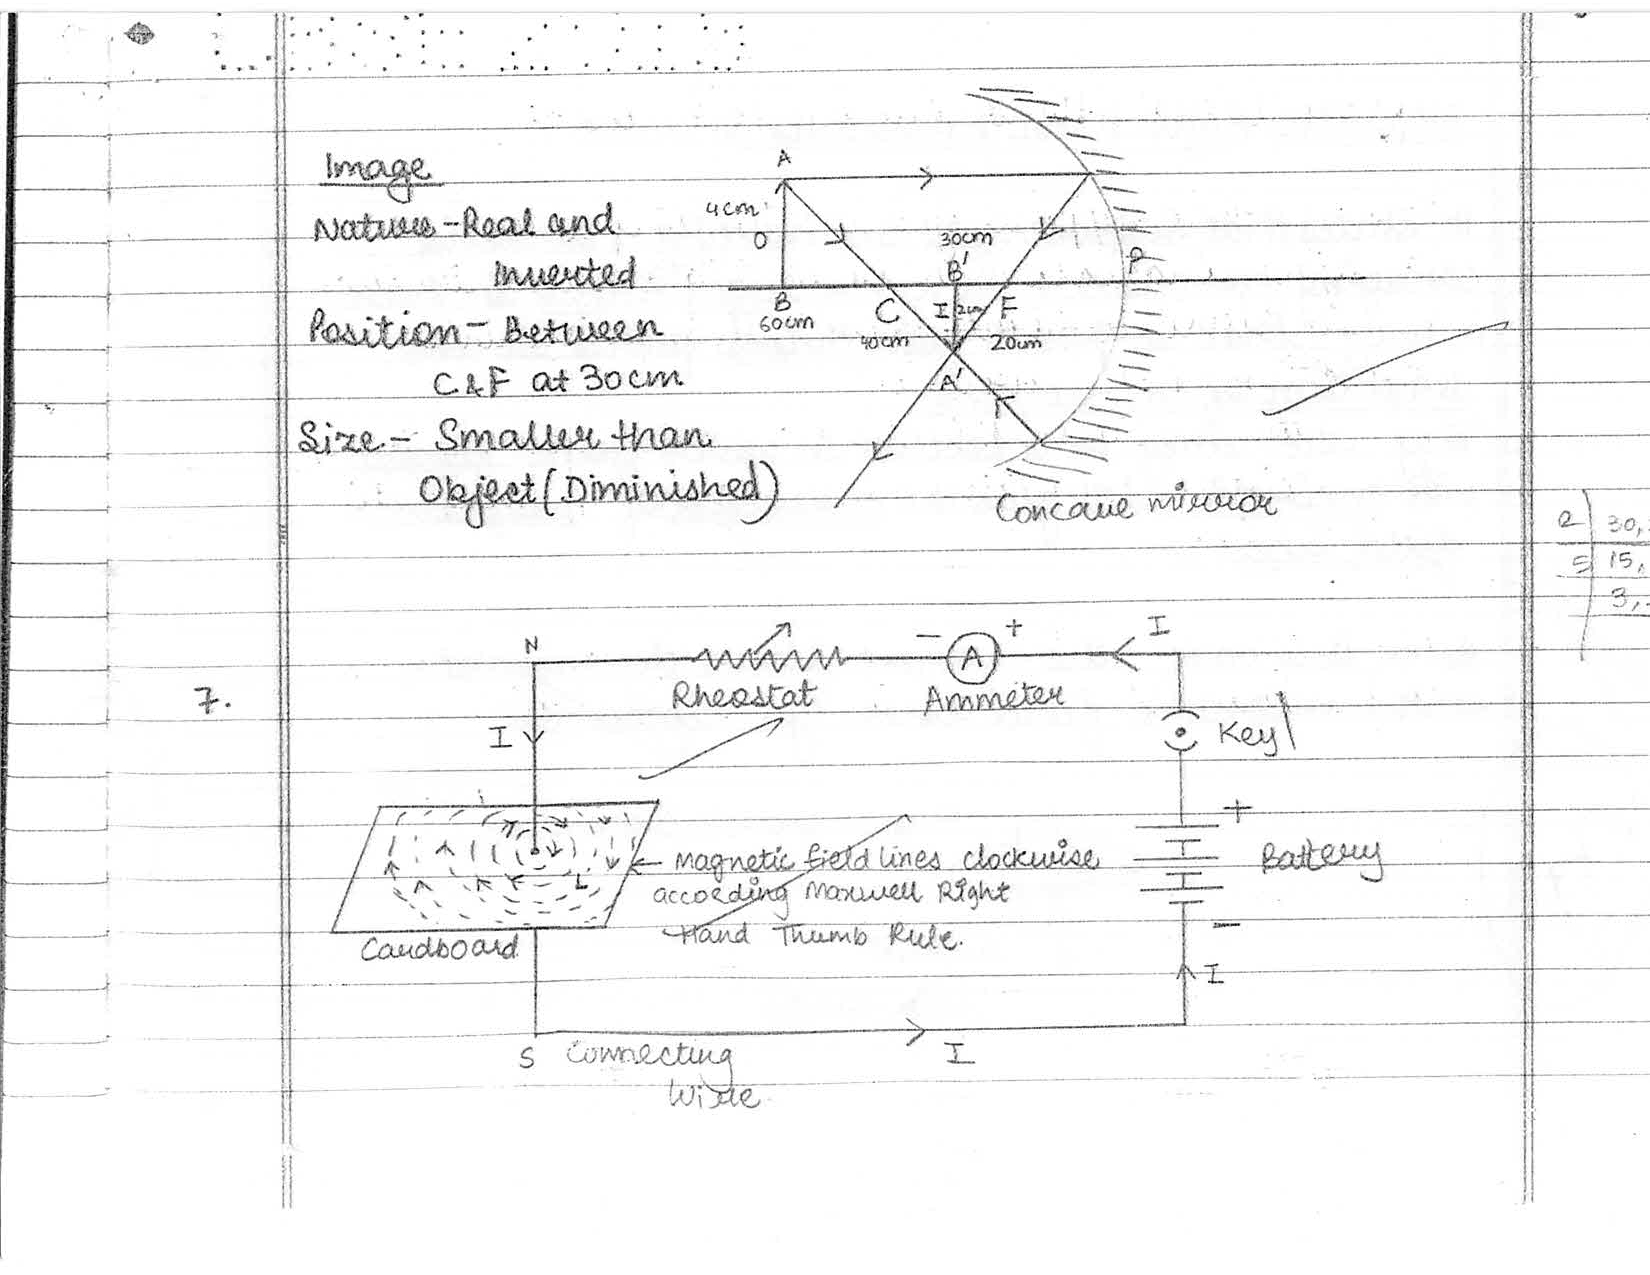 Image
Nature - Real and
Inverted
Position - Between
C & F at 30cm
Size - Smaller than
Object (Diminished)
A
4cm
O
30cm
B'
P
B
60cm
C
I
2cm
F
40cm
20cm
A'
Concave mirror
2 30,
5 15,
3,
7.
N
- A +
I
Rheostat
Ammeter
I
Key
+
Battery
Magnetic field lines clockwise
according Maxwell Right
Hand Thumb Rule.
-
Cardboard
I
I
S Connecting
Wire